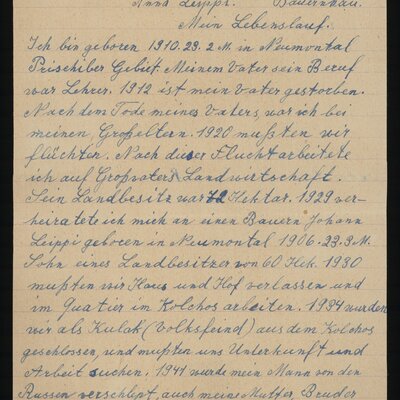 Anna Leippi. Bauernfrau.
Mein Lebenslauf.
Ich bin geboren 1910. 29. 2 M. in Neumontal
Prischiber Gebitt. Meinem Vater sein Beruf
war Lehrer. 1912 ist mein Vater gestorben.
Nach dem Tode meines Vaters, war ich bei
meinen Großeltern. 1920 mußten wir
flüchten. Nach dieser Flucht arbeitete
ich auf Großvaters Landwirtschaft.
Sein Landbesitz war 72 Hektar. 1929 ver-
heiratete ich mich an einen Bauern Johann
Leippi geboren in Neumontal 1906. 23. 9 M.
Sohn eines Landbesitzer von 60 Hek. 1930
mußten wir Haus und Hof verlassen und
im Quatier im Kolchos arbeiten. 1934 wurden
wir als Kulak (Volksfeind) aus dem Kolchos
geschlossen, und mußten uns Unterkunft und
Arbeit suchen. 1941 wurde mein Mann von den
Russen verschlept, auch meine Mutter, Bruder